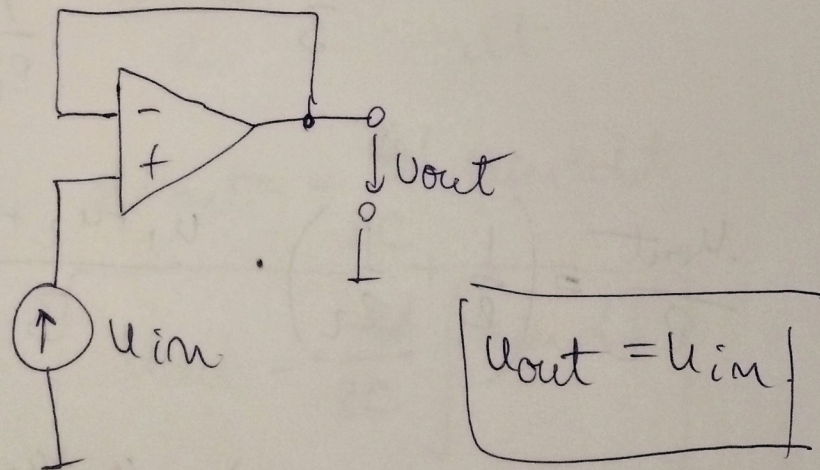 -
+
Uout
uin
uout = uin